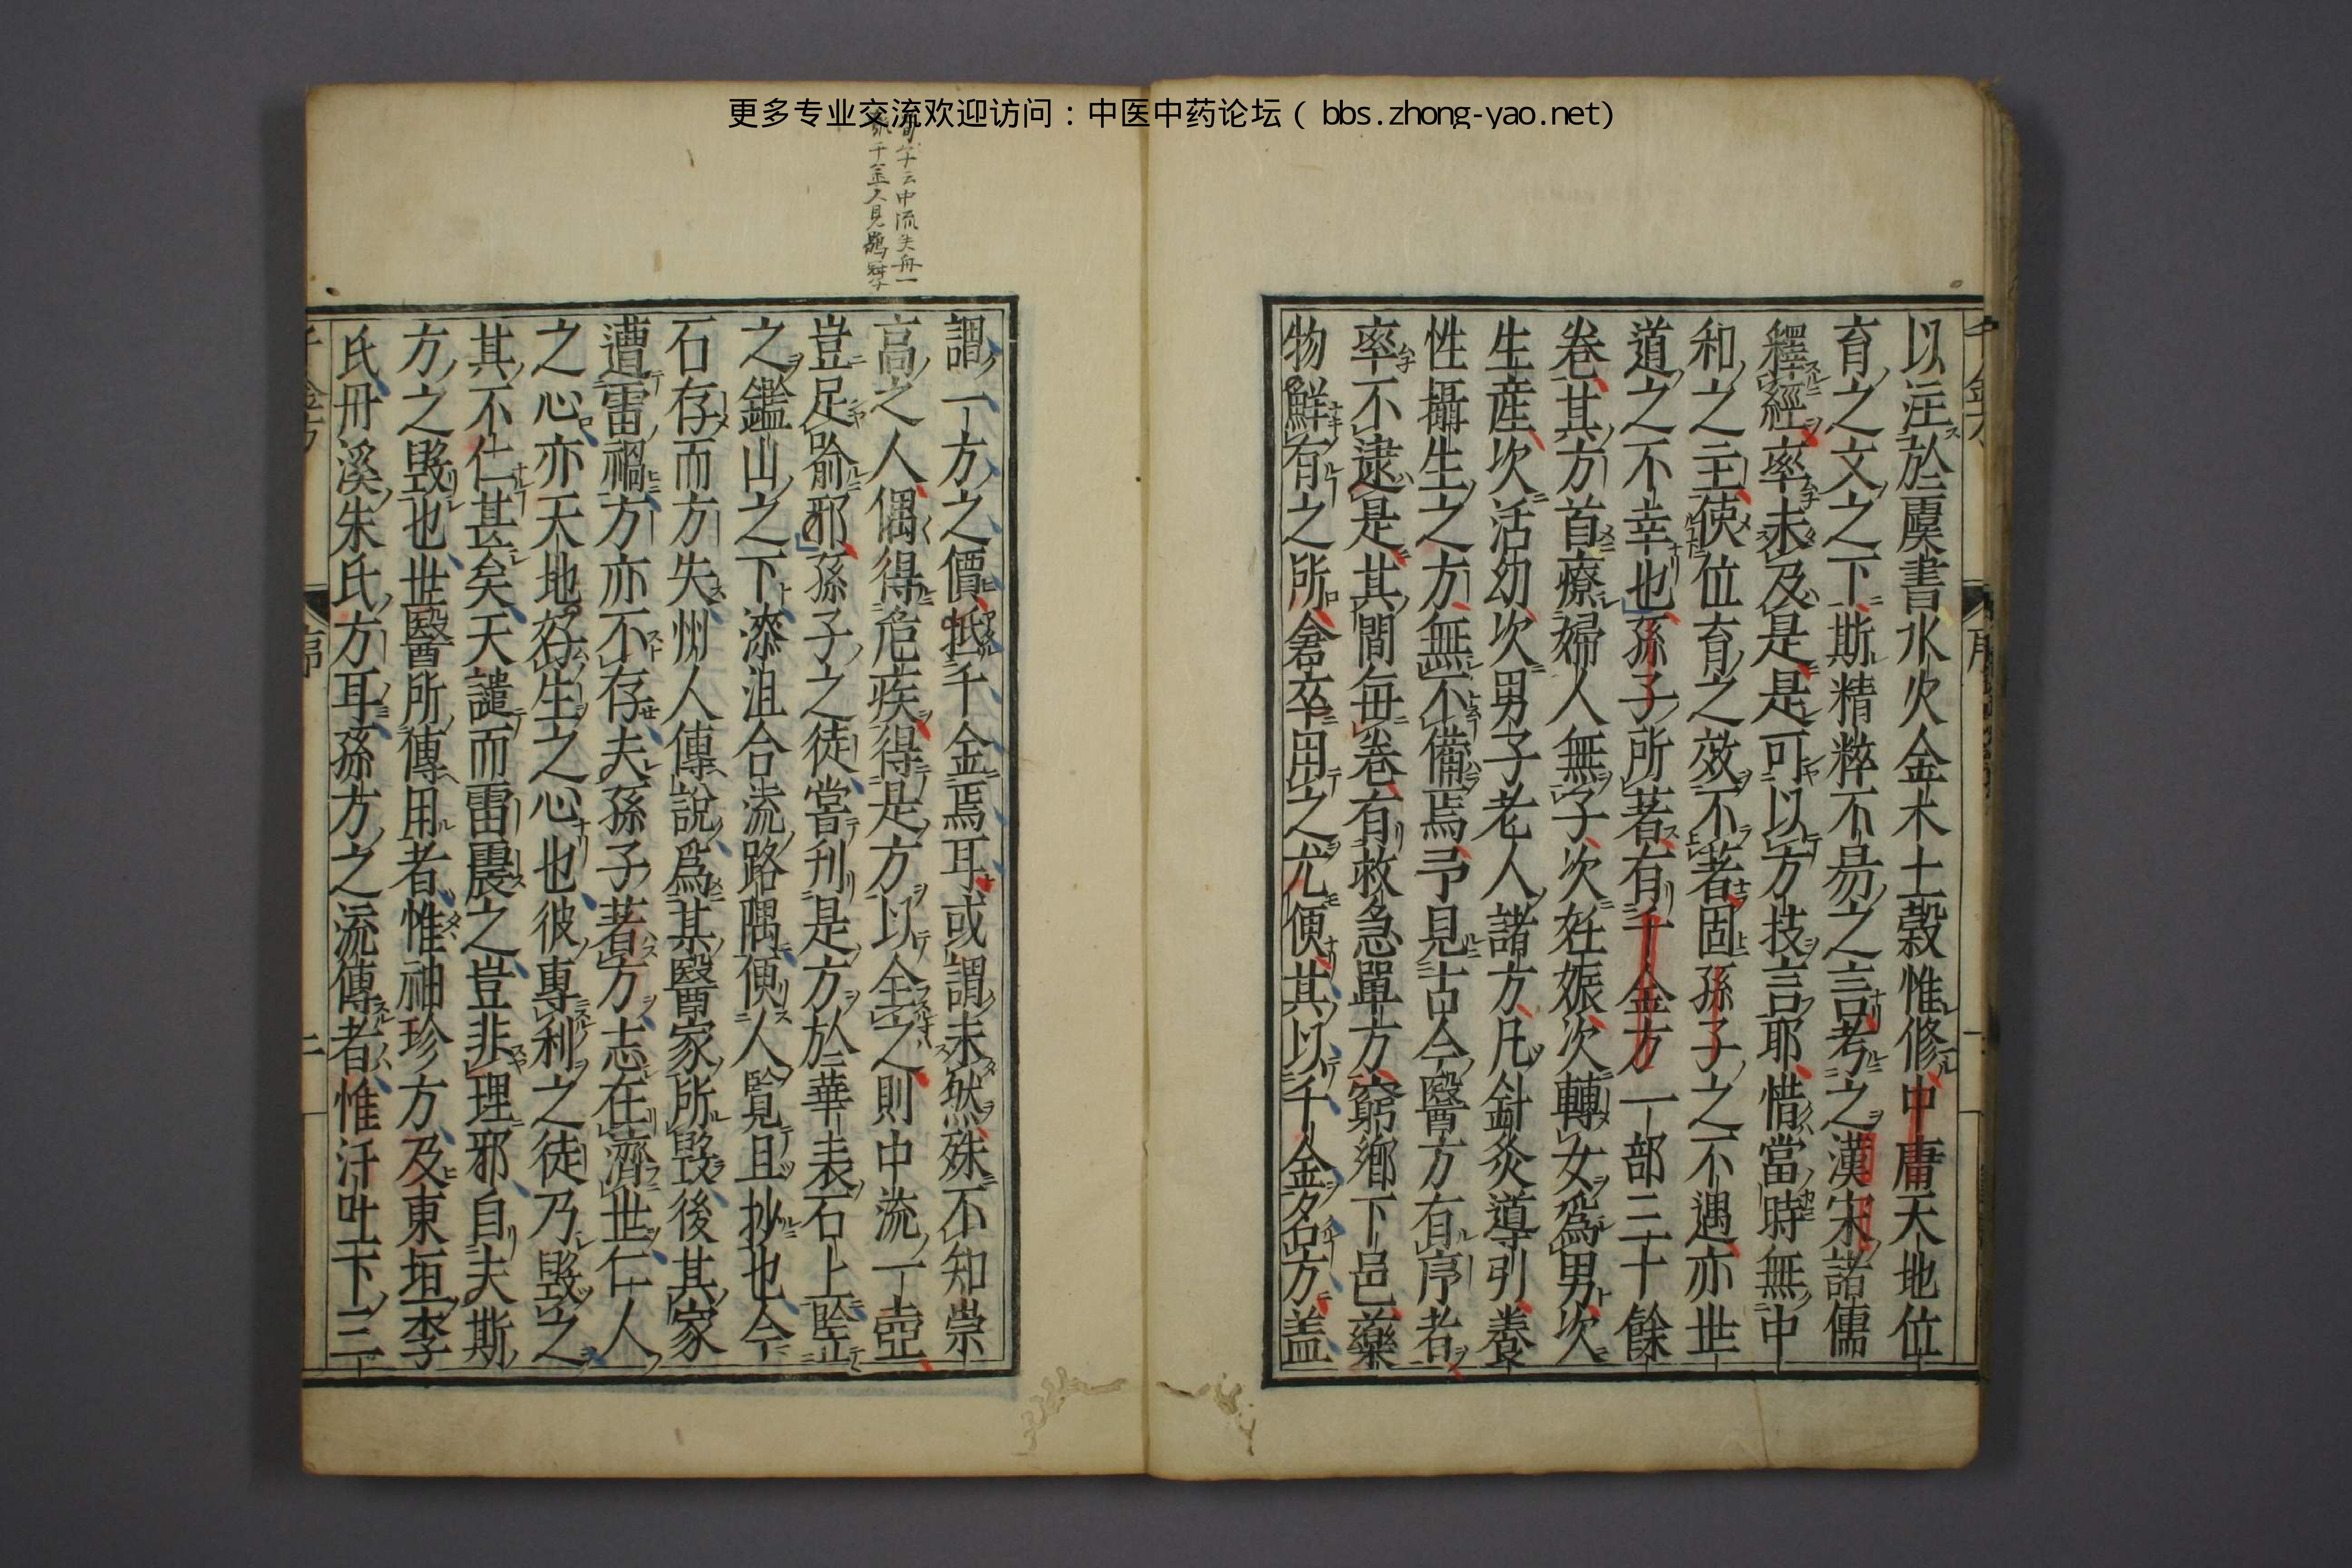 更多专业交流欢迎访问：中医中药论坛（bbs.zhong-yao.net）
以注於虞書水火金木土穀惟修中庸天地位
育之文之下斯精粹不易之言考之漢宋諸儒
釋經率未及是是可以方技言耶惜當時無中
和之主使位育之效不著固孫子之不遇亦世
道之不幸也孫子所著有千金方一部三十餘
卷其方首療婦人無子次妊娠次轉女爲男次
生産次活幼次男子老人諸方凡針灸導引養
性攝生之方無不備焉予見古今醫方有序者
率不逮是其間每卷有救急單方窮鄉下邑藥
物鮮有之所倉卒用之尤便其以千金名方盖
謂一方之價抵千金焉耳或謂未然殊不知崇
高之人偶得危疾得是方以全之則中流一壺
豈足喻邪孫子之徒嘗刋是方於華表石上監
之鑑山之下漆沮合流路隅便人覧且抄也今
石存而方失州人傳說爲某醫家所毀後其家
遭雷禍方亦不存夫孫子著方志在濟世仁人
之心亦天地好生之心也彼專利之徒乃毀之
其不仁甚矣天譴而雷震之豈非理邪自夫斯
方之毀也世醫所傳用者惟袖珍方及東垣李
氏丹溪朱氏方耳孫方之流傳者惟汗吐下三
字云中流失舟一
千金人見鶡冠子
千金方
序
二